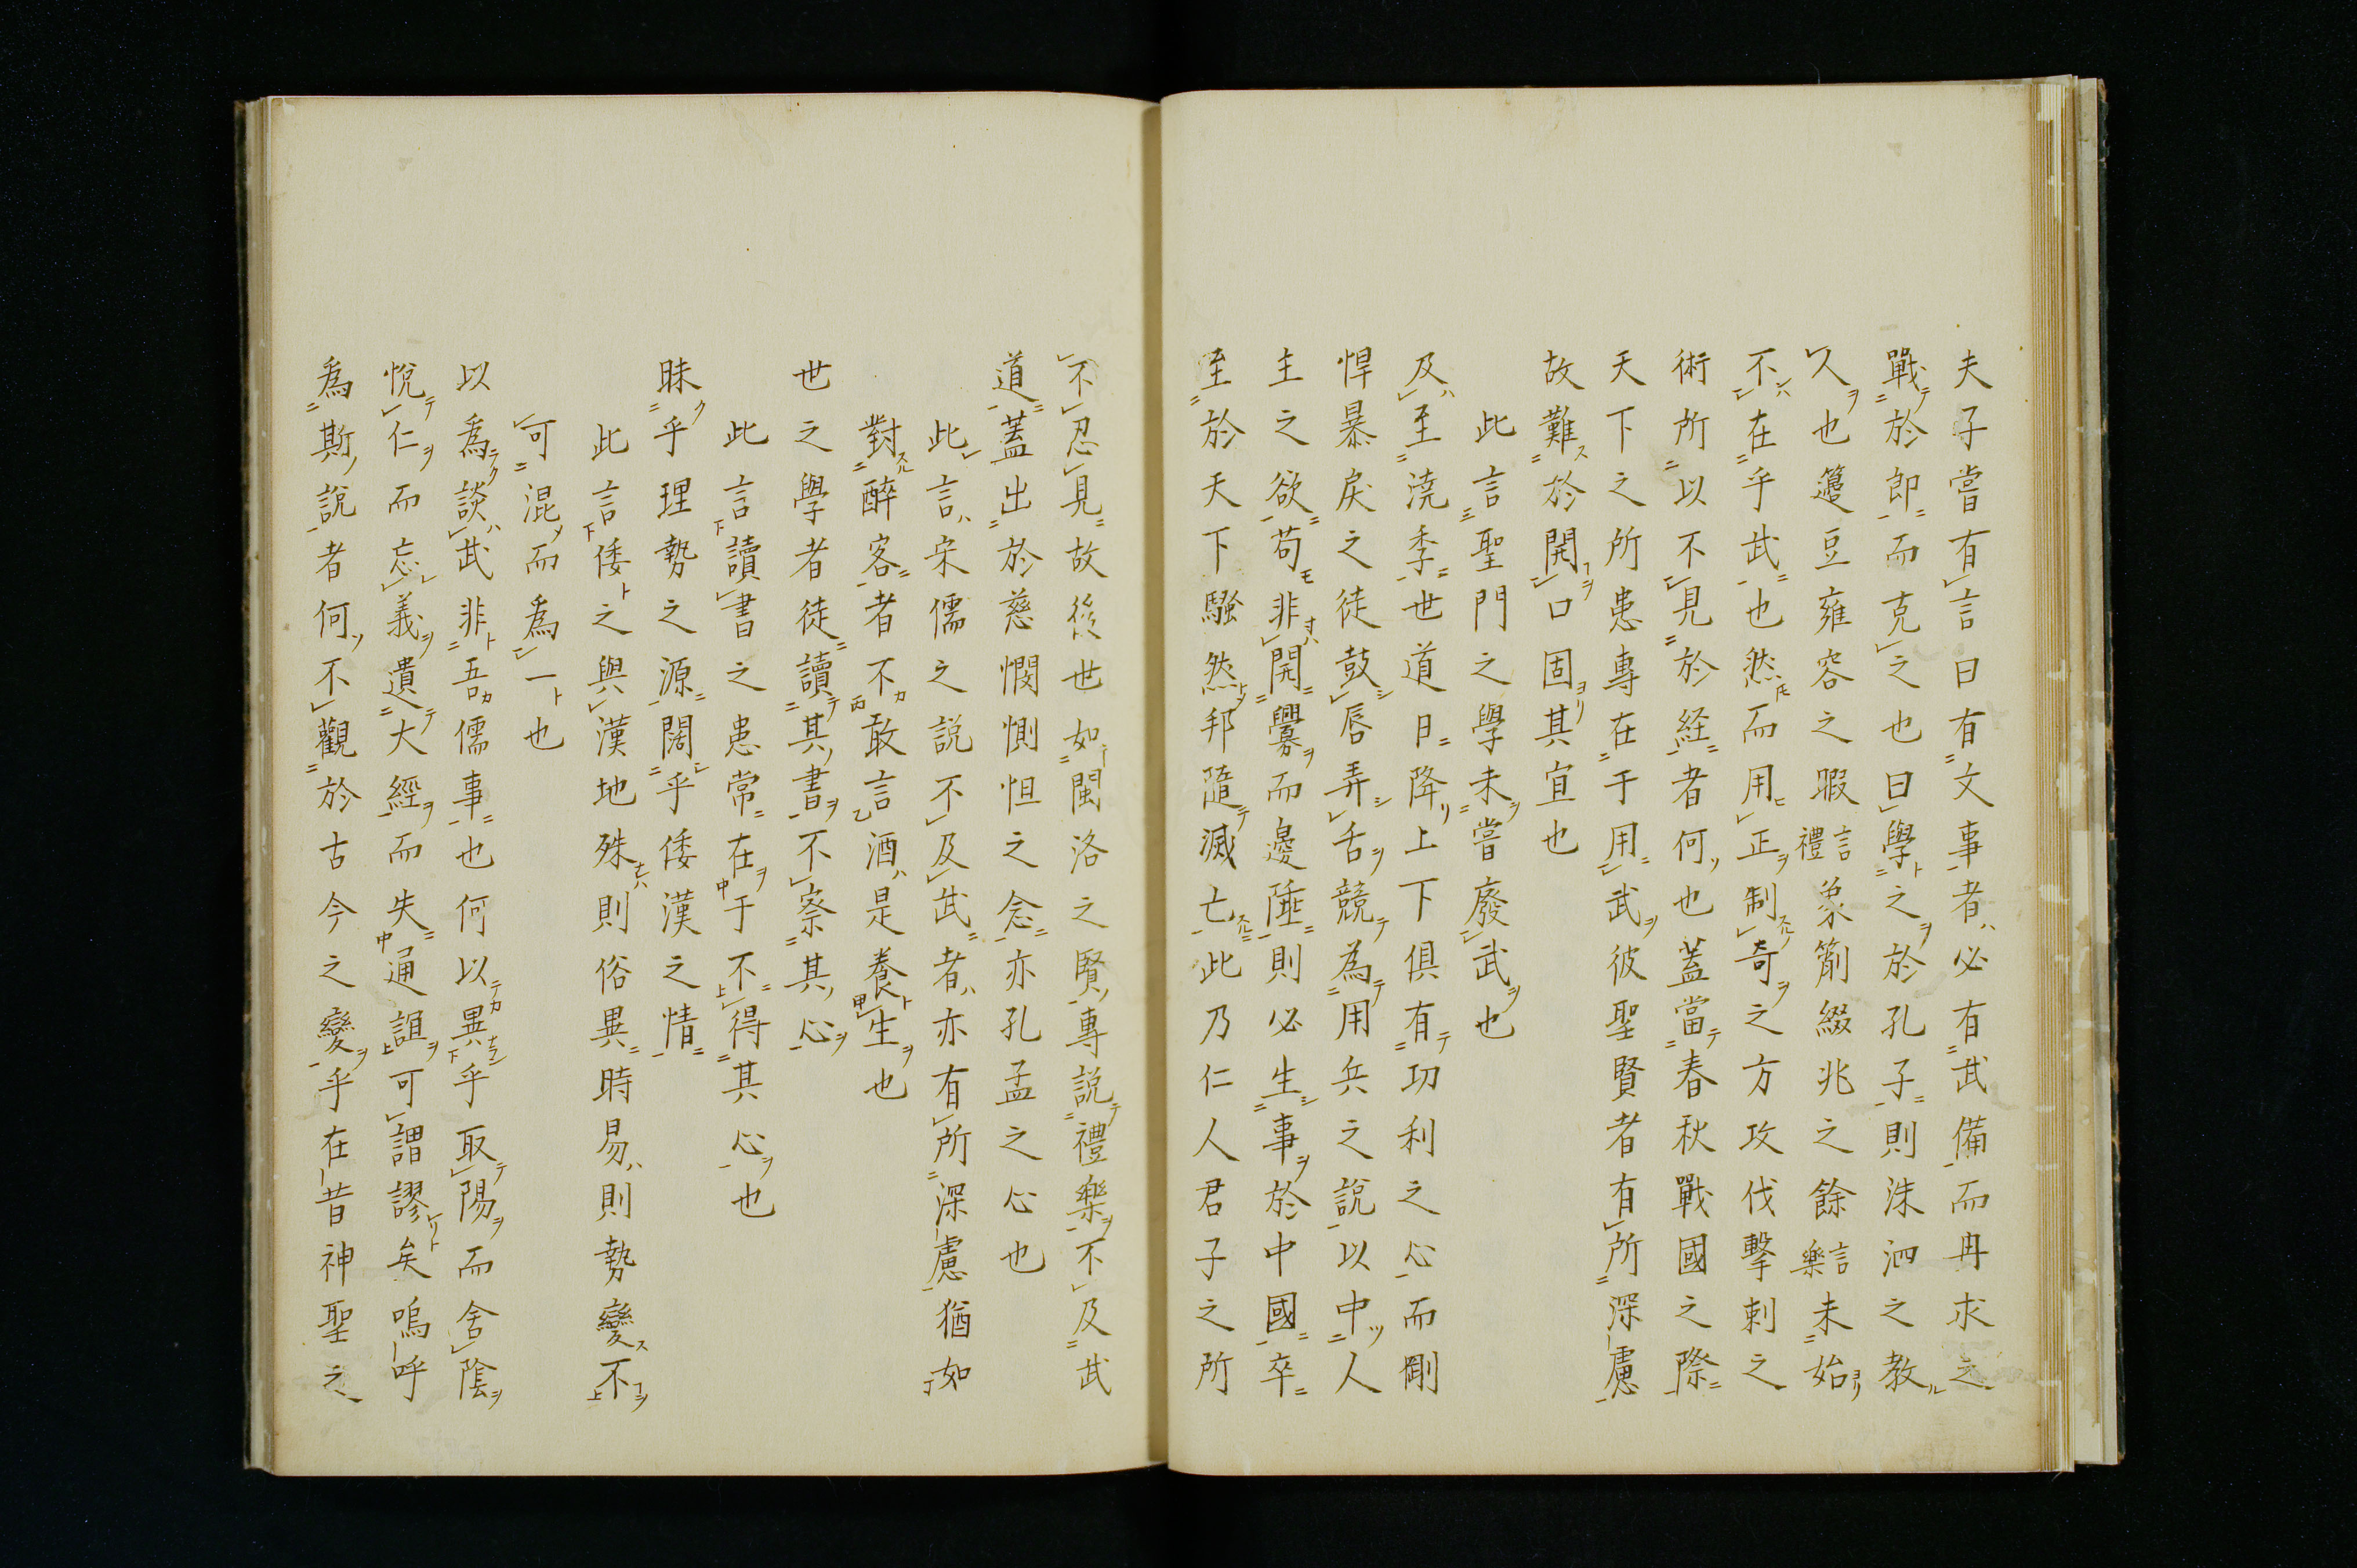 夫子嘗有言曰有文事者必有武備而冉求之
戰於郎而克之也曰學之於孔子則洙泗之教
久也籩豆雍容之暇言禮象箾綴兆之餘言樂未始
不在乎武也然而用正制奇之方攻伐擊刺之
術所以不見於経者何也蓋當春秋戰國之際
天下之所患專在于用武彼聖賢者有所深慮
故難於開口固其宜也
此言聖門之學未嘗廢武也
及至澆季世道日降上下俱有功利之心而剛
悍暴戾之徒鼓唇弄舌競為用兵之說以中人
主之欲苟非開釁而邊陲則必生事於中國卒
至於天下騷然邦隨滅亡此乃仁人君子之所
不忍見故後世如閩洛之賢專說禮樂不及武
道蓋出於慈憫惻怛之念亦孔孟之心也
此言宋儒之説不及武者亦有所深慮猶如
對醉客者不敢言酒是養生也
世之學者徒讀其書不察其心
此言讀書之患常在于不得其心也
昧乎理勢之源闊乎倭漢之情
此言倭之與漢地殊則俗異時易則勢變不
可混而為一也
以為談武非吾儒事也何以異乎取陽而舍陰
悅仁而忘義遺大經而失通誼可謂謬矣嗚呼
為斯說者何不觀於古今之變乎在昔神聖之